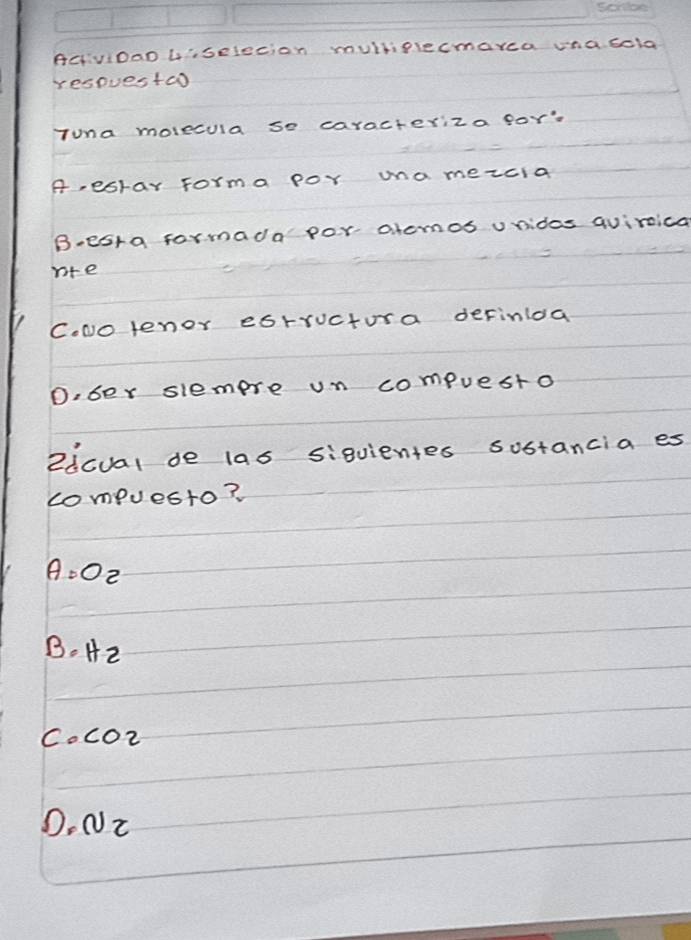 Scribe
ActiviDaD 4: Selecion multiplecmarca una sola
respuesta)
1una molecula se caracteriza por:
A. estar Forma por una mezcla
B. esta formada por atomos unidos quimica
nte
C. No tener estructura definida
D. ser siempre un compuesto
2¿cual de las siguientes sustancia es
compuesto?
A. O2
B. H2
C. CO2
D. N2